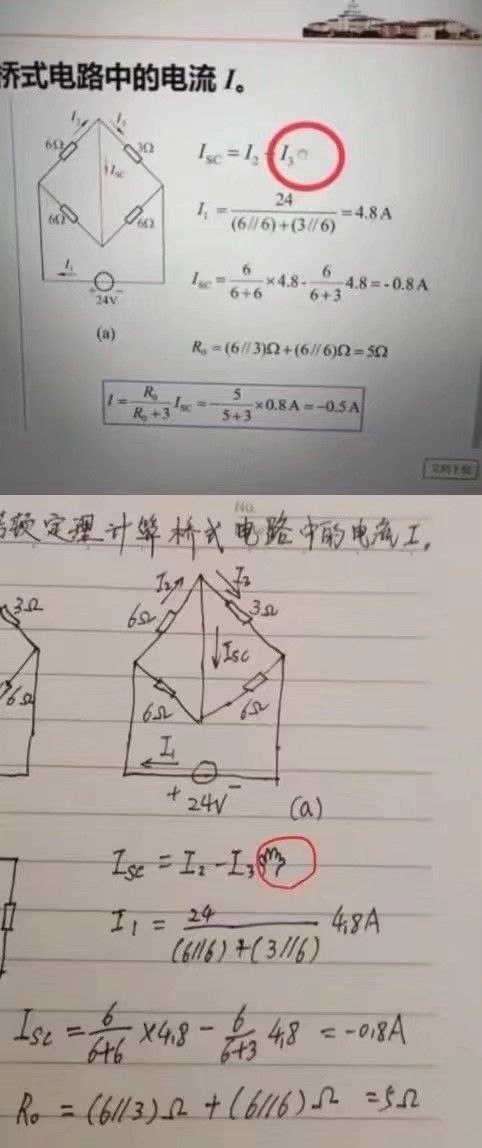 桥式电路中的电流 I。
6Ω
3Ω
I_SC
6Ω
6Ω
I₁
+ 24V −
(a)
I_SC = I₂ - I₃
I₁ = 24/((6//6)+(3//6)) = 4.8 A
I_SC = 6/(6+6) ×4.8 - 6/(6+3) 4.8 = -0.8 A
R₀ = (6//3)Ω+(6//6)Ω=5Ω
I = R₀/(R₀+3) I_SC = -5/(5+3) ×0.8 A = -0.5 A
No.
顿定理计算桥式电路中的电流 I。
3Ω
6Ω
I₂
I₂
6Ω
3Ω
Isc
6Ω
6Ω
I₁
+ 24V −
(a)
Isc = I₂ - I₃
I₁ = 24/((6//6)+(3//6)) 4.8A
Isc = 6/(6+6) ×4.8 - 6/(6+3) 4.8 = -0.8A
R₀ = (6//3)Ω + (6//6)Ω =5Ω